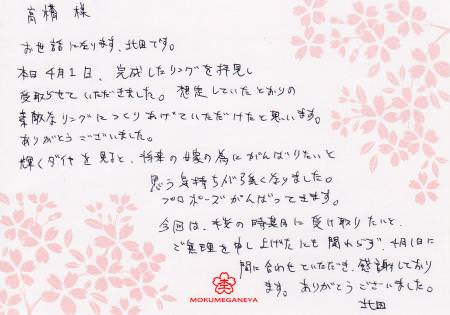 高橋 様
お世話になります、北田です。
本日4月1日、完成したリングを拝見し
受取らせていただきました。想定していたとおりの
素敵なリングにつくりあげていただけたと思います。
ありがとうございました。
輝くダイヤを見ると、将来の嫁の為にがんばりたいと
思う気持ちが強くなりました。
プロポーズがんばってきます。
今回は、桜の時期に受け取りたいと、
ご無理を申し上げたにも関わらず、4月1日に
間に合わせていただき、感謝しており
ます。ありがとうございました。
北田
MOKUMEGANEYA